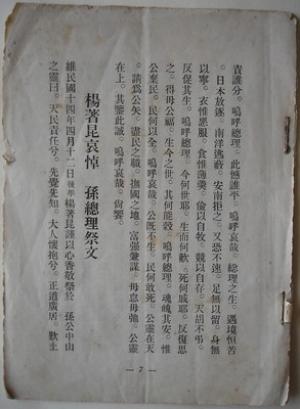 責誰分。嗚呼總理。此憾誰平。嗚呼哀哉。總理之生。遇境恒苦
。日本放逐。南洋逃蔽。安南拒之。又恐不速。足無以留。身無
以寧。衣惟惡服。食惟薄羮。儉以自牧。競以自存。天胡不弔。
反促其生。嗚呼總理。今何世耶。生而何歉。死何戚耶。反復思
之。得毋公福。生今之世。其何能穀。嗚呼總理。魂魄其安。惟
公棄民。民何以全。嗚呼哀哉。公既不生。民何敢死。公靈在天
。請爲公矢。盡民之職。撫國之地。富强兼謀。毋怠毋弛。公靈
在上。其鑒此誠。嗚呼哀哉。尙饗。
楊著昆哀悼 孫總理祭文
維民國十四年四月十二日後學楊著昆謹以心香敬祭於 孫公中山
之靈曰。天民責任兮。先覺先知。大人懷抱兮。正道廣居。歎土
— 7 —